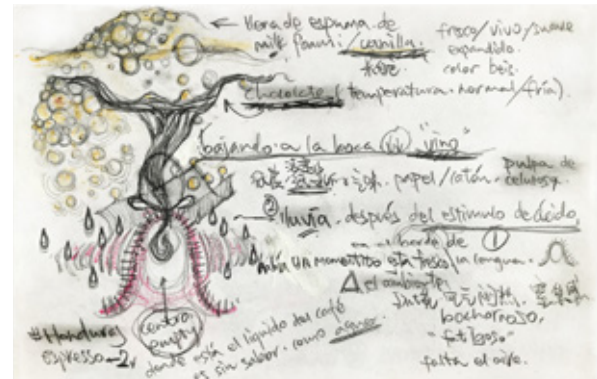 llena de espuma de
milk foam / vainilla.
fresco/vivo/suave
expandido.
color beis.
chocolate (temperatura normal/fría).
bajando a la boca "vino"
papel/ratón.
pulpa de
celulosa
② lluvia. después del estimulo de ácido,
en el borde de ①
había un momentito está fresco/la lengua.
△ el ambiente
bochornoso,
"fatigoso"
falta el aire.
centro
empty
donde está el líquido del café
es sin sabor. como agua
#Honduras
espresso-2